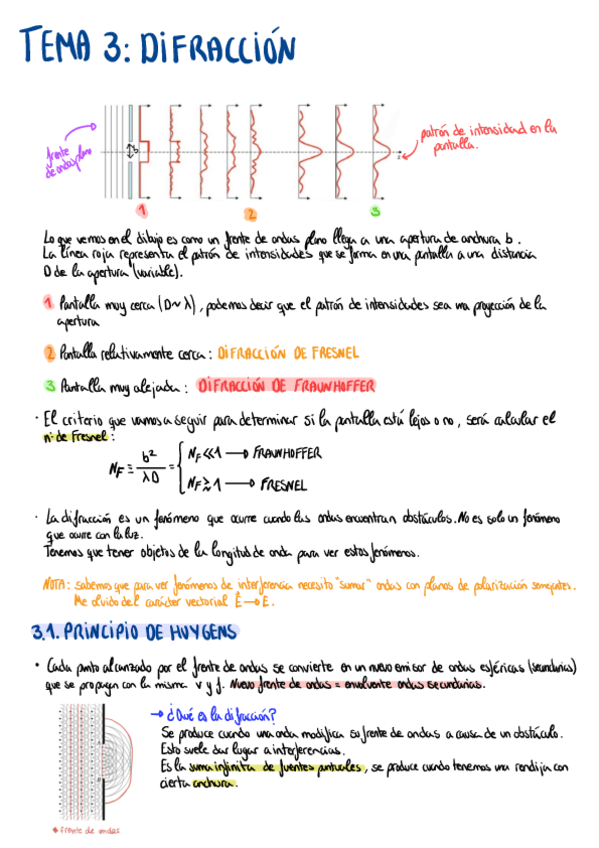 TEMA 3: DIFRACCIÓN
frente
de ondas plano
b
patrón de intensidad en la
pantalla.
1
2
3
Lo que vemos en el dibujo es como un frente de ondas plano llega a una apertura de anchura b.
La línea roja representa el patrón de intensidades que se forma en una pantalla a una distancia
D de la apertura (variable).
1 Pantalla muy cerca (D~λ), podemos decir que el patrón de intensidades sea una proyección de la
apertura
2 Pantalla relativamente cerca: DIFRACCIÓN DE FRESNEL
3 Pantalla muy alejada: DIFRACCIÓN DE FRAUNHOFFER
· El criterio que vamos a seguir para determinar si la pantalla está lejos o no, será calcular el
nº de Fresnel:
N_F ≡ b²/λD = { N_F ≪ 1 → FRAUNHOFFER
N_F ≳ 1 → FRESNEL
· La difracción es un fenómeno que ocurre cuando las ondas encuentran obstáculos. No es solo un fenómeno
que ocurre con la luz.
Tenemos que tener objetos de la longitud de onda para ver estos fenómenos.
NOTA: sabemos que para ver fenómenos de interferencia necesito "sumar" ondas con planos de polarización semejantes.
Me olvido del carácter vectorial E⃗ → E.
3.1. PRINCIPIO DE HUYGENS
• Cada punto alcanzado por el frente de ondas se convierte en un nuevo emisor de ondas esféricas (secundarias)
que se propagan con la misma v y f. Nuevo frente de ondas = envolvente ondas secundarias.
→ ¿Qué es la difracción?
Se produce cuando una onda modifica su frente de ondas a causa de un obstáculo.
Esto suele dar lugar a interferencias.
Es la suma infinita de fuentes puntuales, se produce cuando tenemos una rendija con
cierta anchura.
frente de ondas